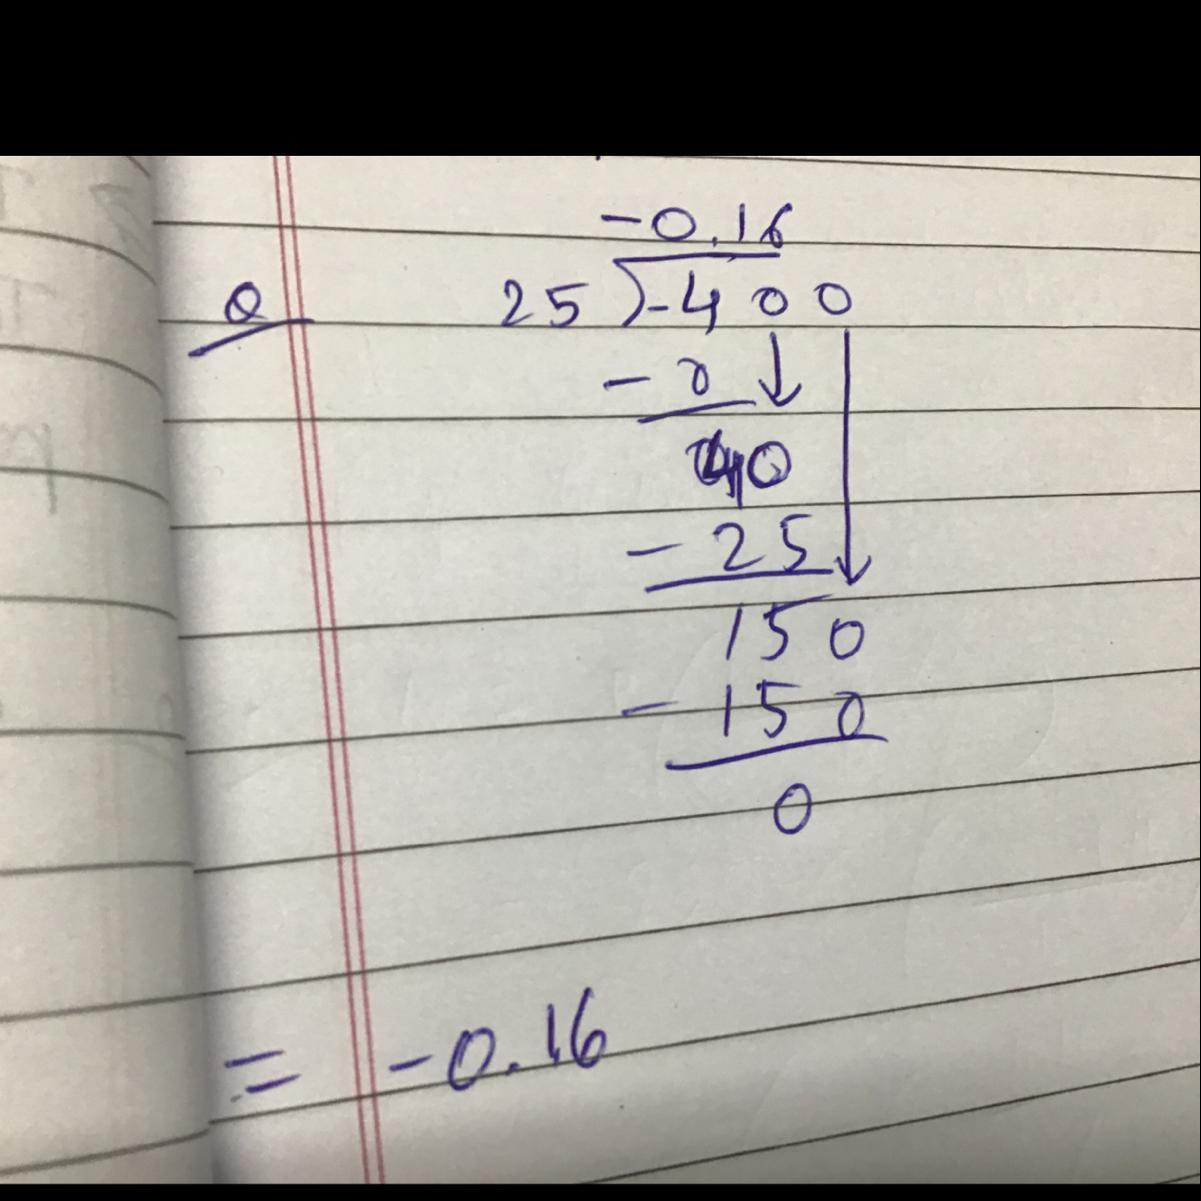 -0.16
Q 25 ) -400
- 0
40
- 25
150
- 150
0
= -0.16